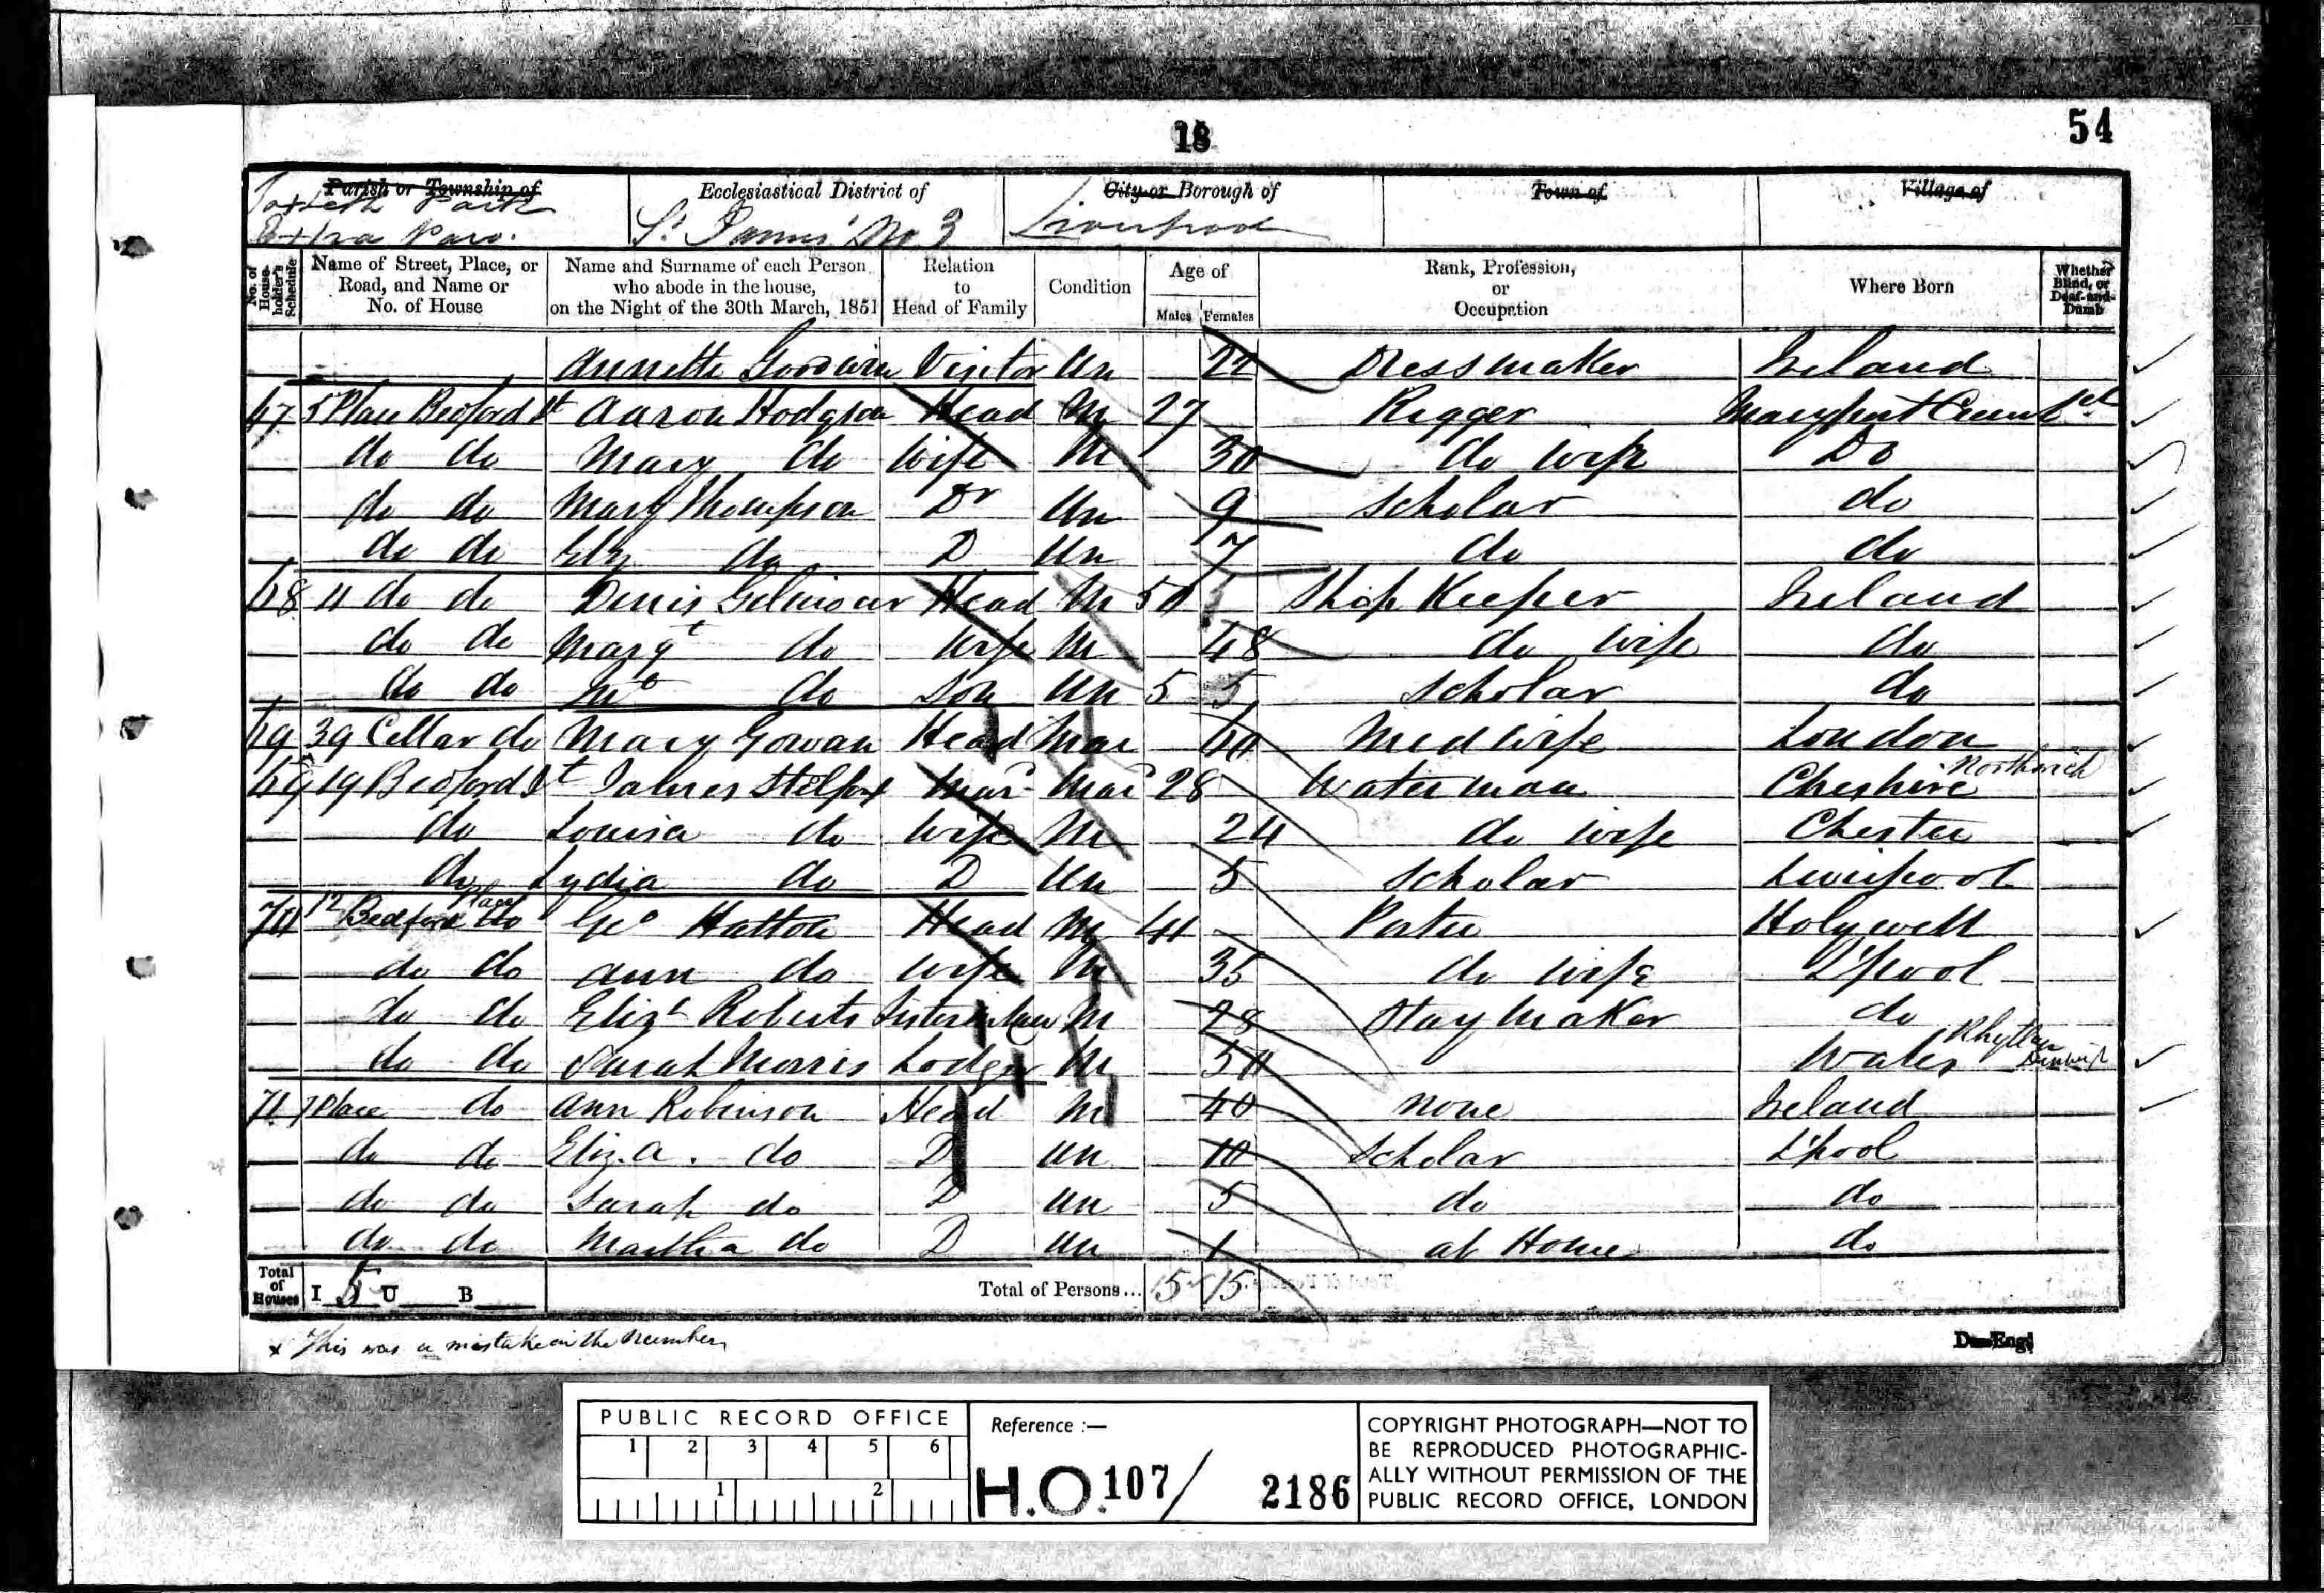 18
54
Parish or Township of Ecclesiastical District of City or Borough of Town of Village of
Toxteth Park
Extra Paro. St James' No 3 Liverpool
No. of House-holder's Schedule
Name of Street, Place, or Road, and Name or No. of House
Name and Surname of each Person who abode in the house, on the Night of the 30th March, 1851
Relation to Head of Family
Condition
Age of
Males Females
Rank, Profession, or Occupation
Where Born
Whether Blind, or Deaf-and-Dumb
Annette Goodwin Visitor Un 22 Dressmaker Ireland
67 5 Place Bedford St Aaron Hodgson Head M 27 Rigger Maryport
do do Mary do Wife M 30 do wife Do
do do Mary Thompson Dr Un 9 Scholar do
do do Elz do D Un 7 do do
68 4 do do Denis Gilmour Head M 50 Ship Keeper Ireland
do do Margt do Wife M 48 do wife do
do do do Son Un 5 5 Scholar do
69 39 Cellar do Mary Gowan Head Mar 40 Medwife London
69 19 Bedford St James Stelfox Mar Mar 28 Waterman Cheshire Northwich
do Louisa do Wife M 24 do wife Chester
do Lydia do D Un 5 Scholar Liverpool
70 12 Bedford Place do Geo Hatton Head M 41 Porter Holywell
do do Ann do Wife M 35 do wife L'pool
do do Elizh Roberts Sister in law M 28 Stay Maker do
do do Sarah Morris Lodger M 50 Wales
71 7 Place do Ann Robinson Head M 40 none Ireland
do do Eliz. a. do D Un 10 Scholar L'pool
do do Sarah do D Un 5 do do
do do Martha do D Un 1 at Home do
Total of Houses I 5 U B Total of Persons... 5 15
x This was a mistake in the number
PUBLIC RECORD OFFICE
1 2 3 4 5 6
1 2
Reference :—
H.O. 107/ 2186
COPYRIGHT PHOTOGRAPH—NOT TO
BE REPRODUCED PHOTOGRAPHIC-
ALLY WITHOUT PERMISSION OF THE
PUBLIC RECORD OFFICE, LONDON